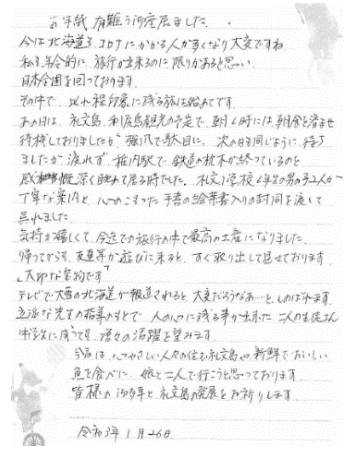 お手紙 有難う御座居ました。
今は北海道も コロナにかかる人が多くなり大変ですね
私も年令的に 旅行が出来るのに限りがあると思い
日本全国を回っております。
その中で 此れ程印象に残る旅は始めてです。
あの日は、礼文島、利尻島観光の予定で、朝4時には朝食を済ませ
待機しておりましたが 強風で駄目に 次の日も同じように待ち
ましたが 渡れず 稚内駅で 鉄道の枕木が終っているのを
感慨深く眺めて居る時でした。礼文小学校6年生の男の子2人が
丁寧な案内と 心のこもった手書の絵葉書入りの封筒を渡して
呉れました。
気持が嬉しくて 今迄での旅行の中で最高の土産になりました。
帰ってからも 友達等が遊びに来ると すぐ取り出して見せております
「大切な宝物です」
テレビで大雪の北海道が報道されると 大変だろうなあ…と しのばれます。
立派な先生の指導のもとで 人の心に残る事が出来た 二人の生徒さん
中学生に成っても 増々の活躍を望みます。
今度は 心やさしい人々の住む礼文島や 新鮮でおいしい
魚を食べに 娘と二人で行こうと思っております
皆様の御多幸と 礼文島の発展をお祈りします。
令和3年1月26日